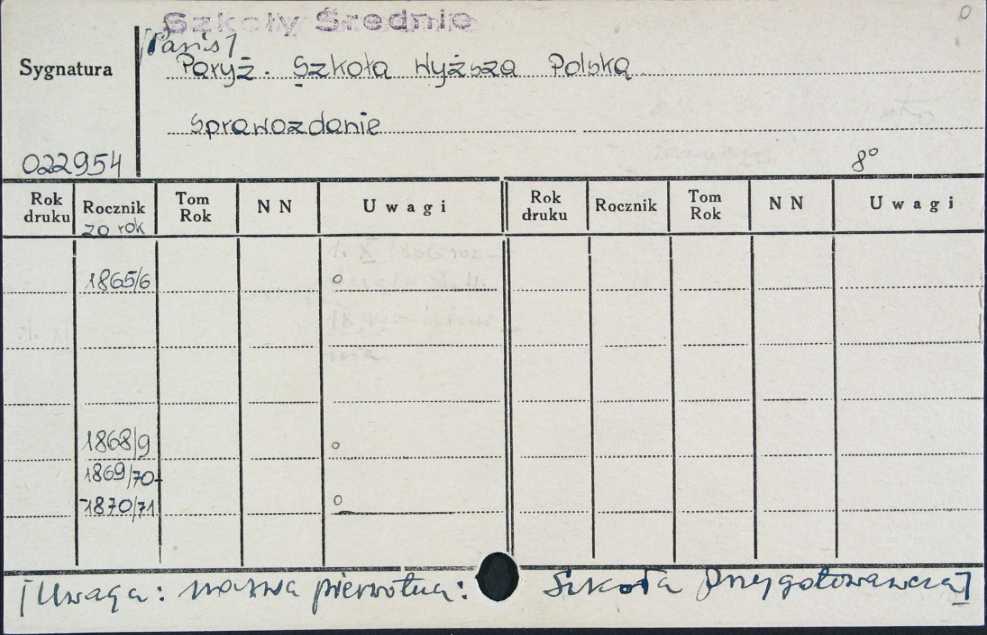 Szkoły Średnie
[Paris]
Sygnatura
Paryż. Szkoła Wyższa Polska
Sprawozdanie
022954
8°
Rok druku Rocznik Tom Rok NN Uwagi Rok druku Rocznik Tom Rok NN Uwagi
za rok
1865/6 o
1868/9 o
1869/70
-1870/71 o
[Uwaga: nazwa pierwotna: Szkoła Przygotowawcza]